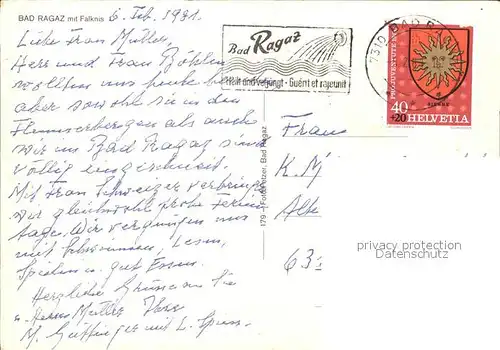 BAD RAGAZ mit Falknis
6. Feb. 1981.
Liebe Frau Müller
Herr und Frau Böhlen
wollten uns heute be
aber sowohl sie in den
Flumserbergen als auch
wir in Bad Ragaz sind
völlig eingeschneit.
Mit Frau Schweizer verbringen
wir gleichwohl frohe Ferien
tage. Wir vergnügen uns
mit Schwimmen, Lesen,
Spielen u. gut Essen.
Herzliche Grüsse an Sie
u. Herrn Müller Ihre
M. mit L.
179 - Foto Fetzer, Bad Ragaz
Bad Ragaz
Heilt und verjüngt - Guérit et rajeunit
7310 BAD R
PRO JUVENTUTE
40
+20
HELVETIA
Frau
K. M
Alte
63
privacy protection
ANSICHTSKARTEN